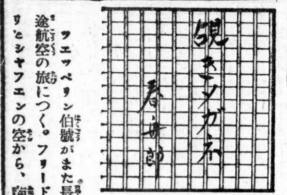 覗きメガネ
春舟郎
ツエッペリン伯號がまた長
途航空の旅につく。フリード
リヒシャフエンの空から、